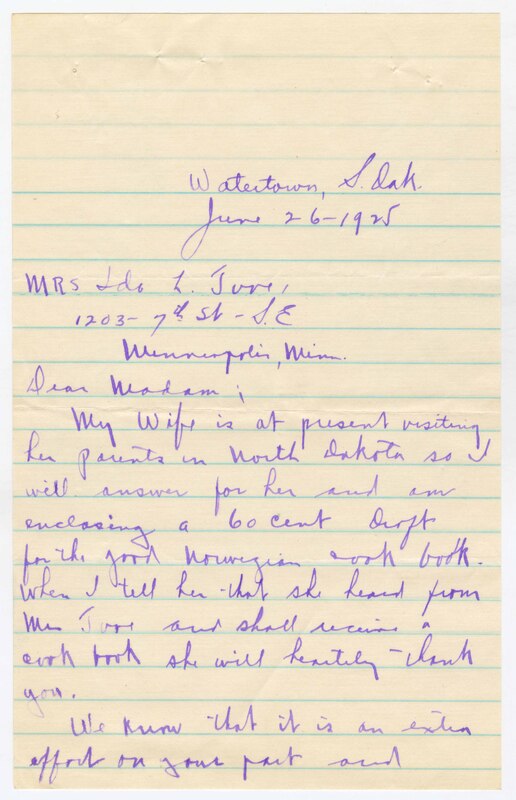 Watertown, S. Dak.
June 26-1925
MRS Ida L. Tvve,
1203- 7th St - S.E
Minneapolis, Minn.
Dear Madam;
My Wife is at present visiting
her parents in North Dakota so I
will answer for her and am
enclosing a 60 cent Draft
for the good Norwegian cook book.
When I tell her that she heard from
Mrs and shall receive a
cook book she will heartily thank
you.
We know that it is an extra
effort on your part and